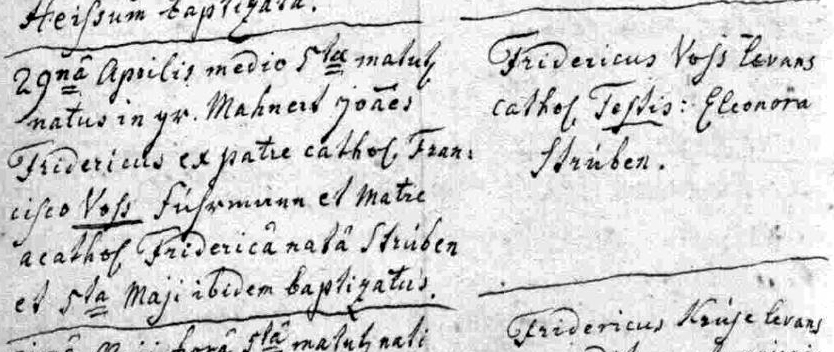 Heissum baptizata.
29nâ Aprilis medio 5ta matut
natus in gr. Mahnert joães
Fridericus ex patre cathol Fran:
cisco Voss Fuhrmann et matre
acathol Fridericâ natâ Strúben
et 5ta Maji ibidem baptizatus.
5tâ matut nati
Fridericus Voss levans
cathol Testis: Eleonora
Strúben.
Fridericus Krúse levans